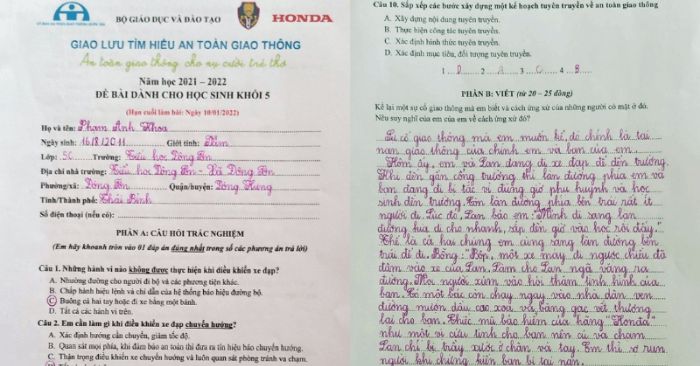 ỦY BAN AN TOÀN GIAO THÔNG QUỐC GIA
BỘ GIÁO DỤC VÀ ĐÀO TẠO
HONDA
GIAO LƯU TÌM HIỂU AN TOÀN GIAO THÔNG
An toàn giao thông cho nụ cười trẻ thơ
Năm học 2021 - 2022
ĐỀ BÀI DÀNH CHO HỌC SINH KHỐI 5
(Hạn cuối làm bài: Ngày 10/01/2022)
Họ và tên: Phạm Anh Khoa
Ngày sinh: 16/8/2011 Giới tính: Nam
Lớp: 5C Trường: Tiểu học Đông Sơn
Địa chỉ nhà trường: Tiểu học Đông Sơn - Xã Đông Sơn
Phường/xã: Đông Sơn Quận/huyện: Đông Hưng
Tỉnh/Thành phố: Thái Bình
Số điện thoại (nếu có):
PHẦN A: CÂU HỎI TRẮC NGHIỆM
(Em hãy khoanh tròn vào 01 đáp án đúng nhất trong số các phương án trả lời)
Câu 1. Những hành vi nào không được thực hiện khi điều khiển xe đạp?
A. Nhường đường cho người đi bộ và các phương tiện khác.
B. Chấp hành hiệu lệnh và chỉ dẫn của hệ thống báo hiệu đường bộ.
C. Buông cả hai tay hoặc đi xe bằng một bánh.
D. Tất cả các hành vi trên.
Câu 2. Em cần làm gì khi điều khiển xe đạp chuyển hướng?
A. Xác định hướng cần chuyển, giảm tốc độ.
B. Quan sát mọi phía, khi đảm bảo an toàn thì đưa ra tín hiệu báo chuyển hướng.
C. Thận trọng điều khiển xe chuyển hướng và luôn quan sát phòng tránh va chạm.
Câu 10. Sắp xếp các bước xây dựng một kế hoạch tuyên truyền về an toàn giao thông
A. Xây dựng nội dung tuyên truyền.
B. Thực hiện công tác tuyên truyền.
C. Xác định hình thức tuyên truyền.
D. Xác định mục tiêu, đối tượng tuyên truyền.
1 D 2 A 3 C 4 B
PHẦN B: VIẾT (từ 20 – 25 dòng)
Kể lại một sự cố giao thông mà em biết và cách ứng xử của những người có mặt ở đó.
Nêu suy nghĩ của em của em về cách ứng xử đó?
Sự cố giao thông mà em muốn kể, đó chính là tai
nạn giao thông của chính em và bạn của em.
Hôm ấy, em và Lan đang đi xe đạp đi đến trường.
Khi đến gần cổng trường thì làn đường phía em và
bạn đang đi bị tắc vì đúng giờ phụ huynh và học
sinh đến trường. Còn làn đường phía bên trái rất ít
người đi. Lúc đó, Lan bảo em: "Mình đi sang làn
đường kia đi cho nhanh, sắp đến giờ vào học rồi đấy."
Thế là cả hai chúng em cùng sang làn đường bên
trái để đi. Bỗng: "Bốp", một xe máy đi ngược chiều đã
đâm vào xe của Lan. Làm cho Lan ngã văng ra
đường. Mọi người xúm vào hỏi thăm tình hình của
bạn. Có một bác còn chạy ngay vào nhà dân ven
đường mượn dầu cao xoa và băng gạc vết thương
lại cho bạn. Chiếc mũ bảo hiểm của hãng "Honda"
như một vị cứu tinh cho bạn nên cú va chạm
Lan chỉ bị trầy xước ở chân và tay. Em thì sợ run
người khi chứng kiến bạn bị tai nạn.